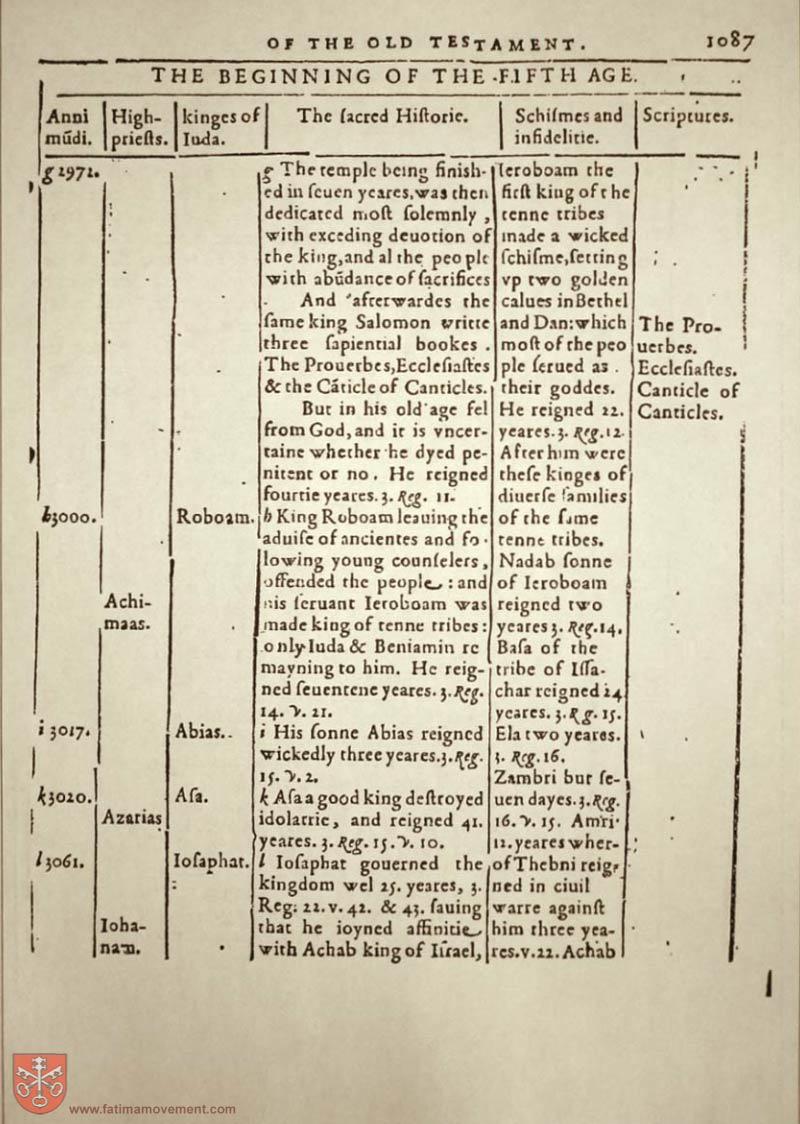 OF THE OLD TESTAMENT.
1087
THE BEGINNING OF THE FIFTH AGE.
Anni
mūdi.
High-
priests.
kinges of
Iuda.
The ſacred Hiſtorie.
Schiſmes and
infidelitie.
Scriptures.
g 2971.
h 3000.
i 3017.
k 3020.
l 3061.
Achi-
maas.
Azarias
Ioha-
nam.
Roboam.
Abias.
Aſa.
Ioſaphat.
g The temple being finiſh-
ed in ſeuen yeares, was then
dedicated moſt ſolemnly,
with exceding deuotion of
the king, and al the people
with abūdance of ſacrifices
And afterwardes the
ſame king Salomon writte
three ſapiential bookes.
The Prouerbes, Eccleſiaſtes
& the Cāticle of Canticles.
But in his old age fel
from God, and it is vncer-
taine whether he dyed pe-
nitent or no. He reigned
fourtie yeares. 3. Reg. 11.
h King Roboam leauing the
aduiſe of ancientes and fo-
lowing young counſelers,
offended the people: and
his ſeruant Ieroboam was
made king of tenne tribes:
only Iuda & Beniamin re
mayning to him. He reig-
ned ſeuentene yeares. 3. Reg.
14. v. 21.
i His ſonne Abias reigned
wickedly three yeares. 3. Reg.
15. v. 2.
k Aſa a good king deſtroyed
idolatrie, and reigned 41.
yeares. 3. Reg. 15. v. 10.
l Ioſaphat gouerned the
kingdom wel 25. yeares, 3.
Reg. 22. v. 42. & 43. ſauing
that he ioyned affinitie
with Achab king of Iſrael,
Ieroboam the
firſt king of the
tenne tribes
made a wicked
ſchiſme, ſetting
vp two golden
calues in Bethel
and Dan: which
moſt of the peo
ple ſerued as
their goddes.
He reigned 22.
yeares. 3. Reg. 12.
After him were
theſe kinges of
diuerſe families
of the ſame
tenne tribes.
Nadab ſonne
of Ieroboam
reigned two
yeares 3. Reg. 14.
Baſa of the
tribe of Iſſa-
char reigned 24
yeares. 3. Rg. 15.
Ela two yeares.
3. Reg. 16.
Zambri but ſe-
uen dayes. 3. Reg.
16. v. 15. Amri
12. yeares wher-
of Thebni reig-
ned in ciuil
warre againſt
him three yea-
res. v. 22. Achab
The Pro-
uerbes.
Eccleſiaſtes.
Canticle of
Canticles.
www.fatimamovement.com